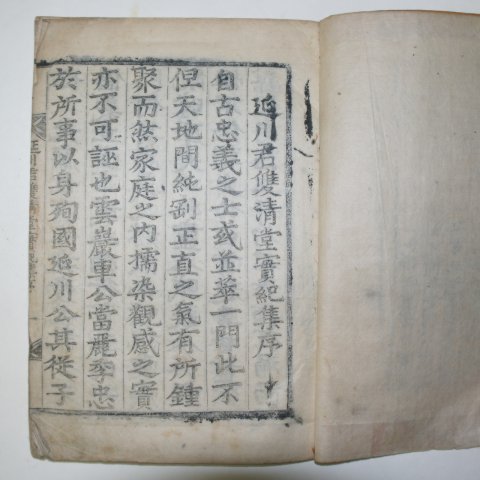 延川君雙清堂實紀集序
自古忠義之士或並萃一門此不
但天地間純剛正直之氣有所鍾
聚而然家庭之內擩染觀感之實
亦不可誣也雲巖車公當麗季忠
於所事以身殉國延川公其從子
延川君雙清堂實紀集序